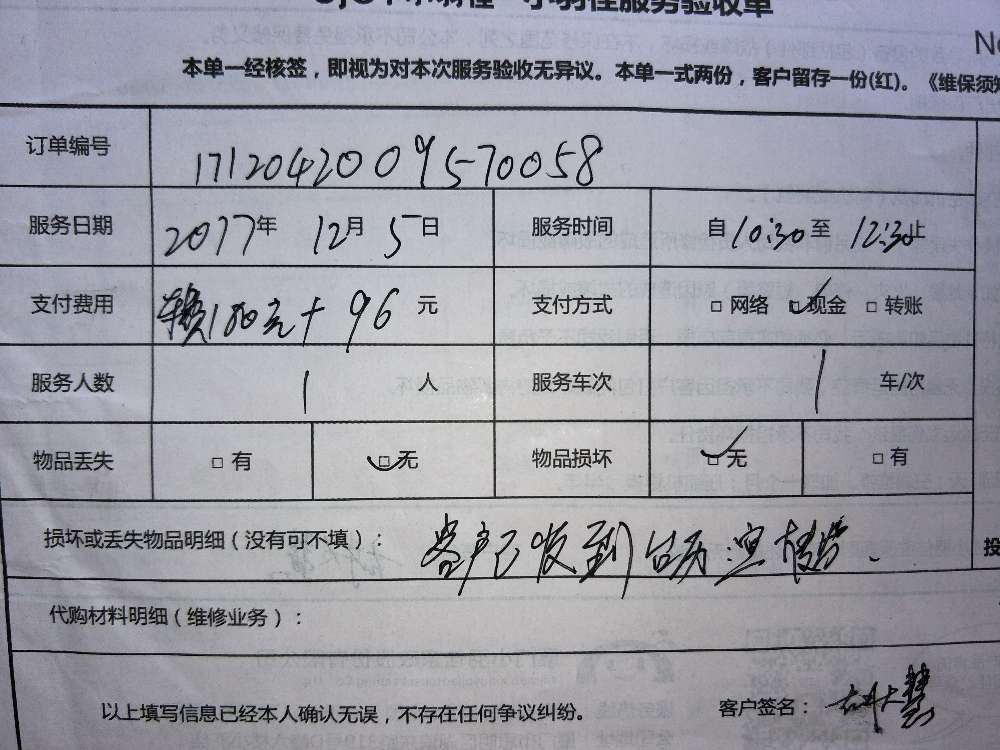 小羽佳服务验收单
No
本单一经核签，即视为对本次服务验收无异议。本单一式两份，客户留存一份(红)。《维保须知
订单编号 171204200 9570058
服务日期 2017年 12月 5日 服务时间 自10:30至12:30止
支付费用 180元+96 元 支付方式 □网络 □现金 □转账
服务人数 1 人 服务车次 1 车/次
物品丢失 □有 □无 物品损坏 □无 □有
损坏或丢失物品明细（没有可不填）： 客户已收到台历、宣传
投
代购材料明细（维修业务）：
以上填写信息已经本人确认无误，不存在任何争议纠纷。 客户签名：